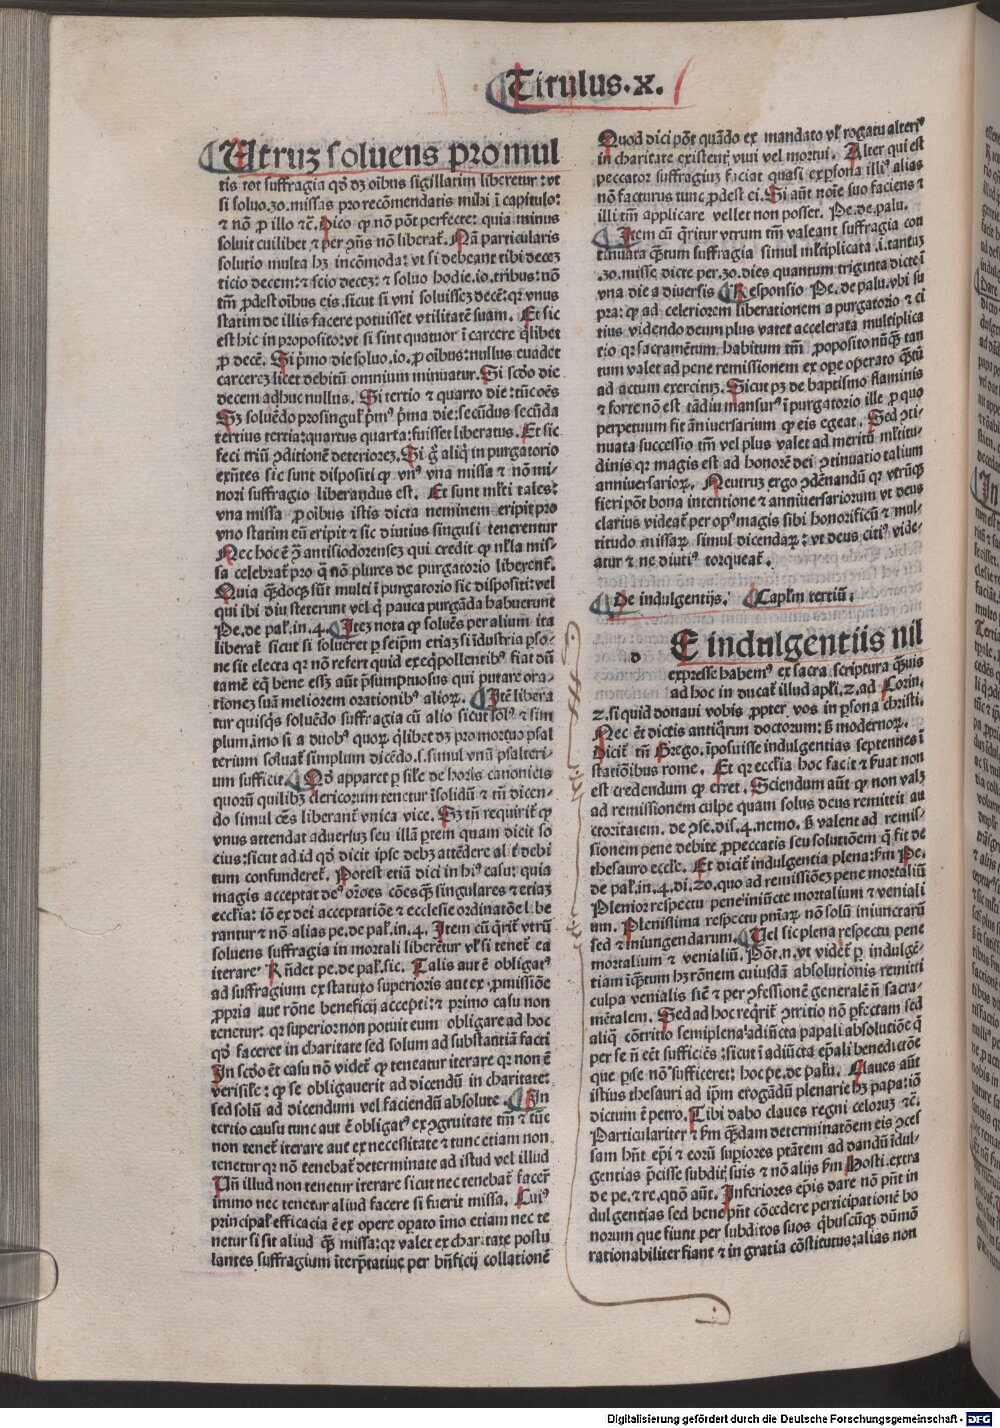 Titulus.x.
Utruz soluens pro mul
tis tot suffragia qꝫ dꝫ oĩbus sigillatim liberetur: vt
si soluo.30.missas pro recõmendatis mihi ĩ capitulo:
⁊ nõ ꝓ illo ⁊c̃. Dico ꝙ nõ põt perfecte: quia minus
soluit cuilibet ⁊ per ꝯñs nõ liberat̃. Nã particularis
solutio multa hꝫ incõmoda: vt si debeant tibi decez
ticio decem: ⁊ scio decez: ⁊ soluo hodie.10.tribus: nõ
tm̃ ꝓdest oĩbus eis.sicut si vni soluissez decẽ: qꝛ vnus
statim de illis facere potuisset vtilitatẽ suam. Et sic
est hic in proposito: vt si sint quatuor ĩ carcere q̃libet
ꝓ decẽ. Si p̃mo die soluo.10.ꝓ oĩbus: nullus euadet
carcerez licet debitũ omnium minuatur. Si scd̃o die
decem adhuc nullus. Si tertio ⁊ quarto die: tũc oẽs
Sꝫ soluẽdo pro singul̃ p̃mꝰ p̃ma die: secũdus secũda
tertius tertia: quartus quarta: fuisset liberatus. Et sic
feci triũ ꝯditionẽ deteriorez. Si g̃ aliq̃ in purgatorio
exñtes sic sunt dispositi ꝙ vnꝰ vna missa ⁊ nõ mi⸗
nori suffragio liberandus est. Et sunt ml̃ti tales:
vna missa ꝓ oĩbus istis dicta neminem eripit pro
vno statim eũ eripit ⁊ sic diutius singuli tenerentur
Nec hoc ẽ ꝯ̃ antisiodorensez qui credit ꝙ nl̃la mis⸗
sa celebrat̃ pro q̃ nõ plures de purgatorio liberent̃.
Quia q̃ndoqꝫ sũt multi ĩ purgatorio sic dispositi: vel
qui ibi diu steterunt vel q̃ pauca purgãda habuerunt
Pe. de pal̃.in.4. Itez nota ꝙ soluẽs per alium ita
liberat̃ sicut si solueret ꝑ seip̃m etiaz si ĩdustria ꝑso⸗
ne sit electa qꝛ nõ refert quid ex eq̃pollentibꝰ fiat dũ
tamẽ eq̃ bene essꝫ aũt p̃sumptuosus qui putare ora⸗
tionez suã meliorem orationibꝰ alioꝝ. Itẽ libera
tur quisqꝫ soluẽdo suffragia cũ alio sicut solꝰ ⁊ sim
plum.ĩmo si a duobꝰ quoꝝ q̃libet dꝫ pro mortuo psal
terium soluat̃ simplum dicẽdo.s.simul vnũ psalteri⸗
um sufficit. Qd̃ apparet ꝑ sil̃e de horis canonicis
quorũ quilibꝫ clericorum tenetur ĩsolidũ ⁊ tm̃ dicen⸗
do simul oẽs liberant̃ vnica vice. Sꝫ tñ requirit̃ ꝙ
vnus attendat ad versuz seu illã p̃tem quam dicit so
cius: sicut ad id qd̃ dicit ipse debꝫ attẽdere al̃ debi
tum confunderet̃. Potest etiã dici in hꝰ casu: quia
magis acceptat deꝰ or̃oes cõesq̃ singulares ⁊ etiaz
ecclia: iõ ex dei acceptatiõe ⁊ ecclesie ordinatõe libe
rantur ⁊ nõ alias pe.de pal̃.in.4. Item cũ q̃rit̃ vtrũ
soluens suffragia in mortali liberetur vl̃ si tenet̃ ea
iterare Rñdet pe.de pal̃.sic. Talis aut ẽ obligatꝰ
ad suffragium ex statuto superioris aut ex ꝓmissiõe
ꝓpria aut rõne beneficij accepti: ⁊ primo casu non
tenetur: qꝛ superior non potuit eum obligare ad hoc
qd̃ faceret in charitate sed solum ad substantiã facti
In scd̃o ẽt casu nõ videt̃ ꝙ teneatur iterare qꝛ non ẽ
verisil̃e: ꝙ se obligauerit ad dicendũ in charitate:
sed solũ ad dicendum vel faciendũ absolute. In
tertio casu tunc aut ẽ obligatꝰ ex ꝯgruitate tm̃ ⁊ tũc
non tenet̃ iterare aut ex necessitate ⁊ tunc etiam non
tenetur qꝛ nõ tenebat̃ determinate ad istud vel illud
Vñ illud non tenetur iterare sicut nec tenebat̃ facer̃
immo nec tenetur aliud facere si fuerit missa. Cuiꝰ
principal̃ efficacia ẽ ex opere oꝑato ĩmo etiam nec te
netur si sit aliud q̃ missa: qꝛ valet ex charitate postu
lantes suffragium ĩterp̃tatiue per bñficij collationẽ
Quod dici põt quãdo ex mandato vl̃ rogatu alteriꝰ
in charitate existent̃ viui vel mortui. Alter qui est
peccator suffragiuz faciat quasi ex ꝑsona illiꝰ alias
nõ facturus tunc ꝓdest ei. Si aũt noĩe suo faciens ⁊
illi tm̃ applicare vellet non posset. Pe. de. palu.
Item cũ q̃ritur vtrum tm̃ valeant suffragia con
tinuata q̃tum suffragia simul ml̃tiplicata.i.tantuz
.30.misse dicte per.30.dies quantum triginta dicte ĩ
vna die a diuersis Responsio Pe. de palu.vbi su
pra: ꝙ ad celeriorem liberationem a purgatorio ⁊ ci
tius videndo deum plus valet accelerata multiplica
tio qꝛ sacramẽtum habitum tm̃ ꝓposito nũq̃ tan
tum valet ad pene remissionem ex oꝑe operato q̃tũ
ad actum exercitus. Sicut pꝫ de baptismo flaminis
⁊ forte nõ est tãdiu mansurꝰ ĩ purgatorio ille ꝓ quo
perpetuum fit ãniuersarium ꝙ eis egeat. Sed ꝯti⸗
nuata successio tm̃ vel plus valet ad meritũ ml̃titu⸗
dinis qꝛ magis est ad honorẽ dei ꝯtinuatio talium
anniuersarioꝝ. Neutruz ergo ꝯdẽnandũ qꝛ vtrũqꝫ
fieri põt bona intentione ⁊ anniuersariorum vt deus
clarius videat̃ per opꝰ magis sibi honorificũ ⁊ mul⸗
titudo missaꝝ simul dicendaꝝ: vt deus citiꝰ vide⸗
atur ⁊ ne diutiꝰ torqueat̃.
De indulgentijs. Capl̃m tertiũ.
E indulgentiis nil
expresse habemꝰ ex sacra scriptura q̃uis
ad hoc in ducat̃ illud apl̃i.2.ad Corin.
2.si quid donaui vobis ꝓpter vos in ꝑsona christi.
Nec ẽt dictis antiq̃rum doctorum: sꝫ modernoꝝ.
Dicit̃ tñ Grego. ĩposuisse indulgentias septennes ĩ
statiõibus rome. Et qꝛ ecclia hoc facit ⁊ ẜuat non
est credendum ꝙ erret. Sciendum aũt ꝙ non valꝫ
ad remissionem culpe quam solus deus remittit au
ctoritatem. de ꝯse.dis.4.nemo. sꝫ valent ad remis⸗
sionem pene debite ꝓ peccatis seu solutiõem q̃ fit de
thesauro eccl̃e. Et dicit̃ indulgentia plena: ẜm Pe.
de pal̃.in.4.di.20.quo ad remissiõez pene mortaliũ
Plenior respectu pene iniũcte mortalium ⁊ veniali
um. Plenissima respectu pñiaꝝ nõ solũ iniunctarũ
sed ⁊ iniungendarum. Vel sic plena respectu pene
mortalium ⁊ venialiũ. Põt.n.vt videt̃ ꝑ indulgẽ⸗
tiam ĩq̃tum hꝫ rõnem cuiusdã absolutionis remitti
culpa venialis sic̃ ⁊ per ꝯfessionẽ generalẽ ñ sacra⸗
mẽtalem. Sed ad hoc req̃rit̃ ꝯtritio nõ ꝑfectam sed
aliq̃ cõtritio semiplena: adiũcta papali absolutiõe q̃
per se ñ eẽt sufficiẽs: sicut ĩ adiũcta ep̃ali benedictõe
que ꝑ se nõ sufficeret: hoc pe. de palu. Claues aũt
istius thesauri ad ip̃m erogãdũ plenarie hꝫ papa: iõ
dictum ẽ petro. Tibi dabo claues regni celoruz ⁊c̃.
Particulariter ⁊ ẜm q̃ndam determinatõem eis ꝯces
sam hñt ep̃i ⁊ eorũ suꝑiores ptãtem ad dandũ ĩdul⸗
gentias p̃cisse subdit̃ suis ⁊ nõ alijs ẜm Hosti. extra
de pe.⁊ re.quõ aũt. Inferiores ep̃is dare nõ pñt in
dulgentias sed bene pñt cõcedere perticipationẽ bo
norum que fiunt per subditos suos q̃buscũqꝫ dũmõ
rationabiliter fiant ⁊ in gratia cõstitutus: alias non
Digitalisierung gefördert durch die Deutsche Forschungsgemeinschaft - DFG